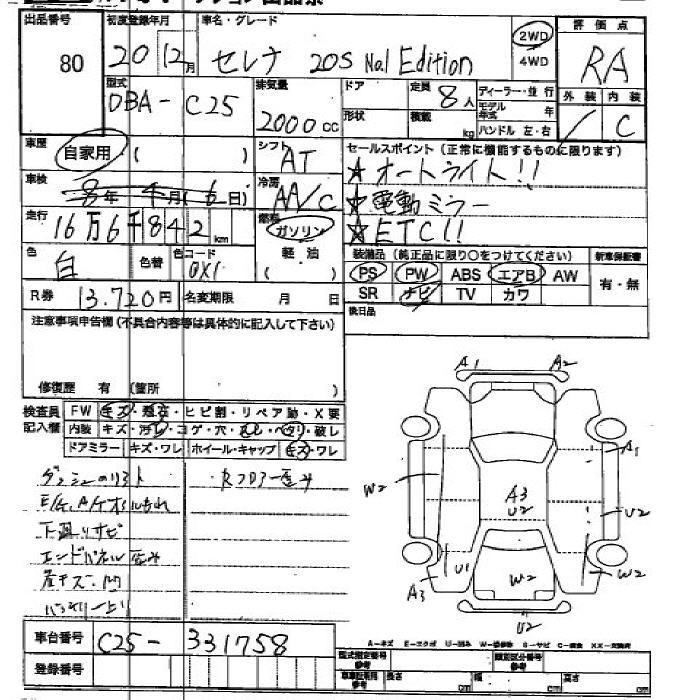 出品番号 初度登録年月 車名・グレード 評価点
80 20 12月 セレナ 20S Nal Edition 2WD 4WD RA
型式 排気量 ドア 定員 8人 ディーラー・並行 外装 内装
DBA-C25 2000cc 形状 積載 kg モデル年式 年 C
ハンドル 左・右
車歴 自家用 ( ) シフト AT セールスポイント(正常に機能するものに限ります)
★オートライト!!
車検 8年 4月(6日) 冷房 AA/C ★電動ミラー
走行 16万6千842km 燃料 ガソリン ★ETC!!
色 白 色替 色コード QX1 軽油 ( ) 装備品(純正品に限り○をつけてください) 新車保証書
PS PW ABS エアB AW 有・無
R券 13,720円 名変期限 月 日 SR ナビ TV カワ
注意事項申告欄(不具合内容等は具体的に記入して下さい) 後日品
修復歴 有 (箇所 )
検査員 FW キズ・飛石・ヒビ割・リペア跡・X要
記入欄 内装 キズ・汚レ・コゲ・穴・丸レ・ベタリ・破レ
ドアミラー キズ・ワレ ホイール・キャップ キズ・ワレ
A1 A2
A1
W2 A3 U2 U2
下廻りサビ
エンドパネル歪み
U1 W2 W2
A3
U2
車台番号 C25-331758
A-キズ E-エクボ U-凹み W-補修跡 S-サビ C-腐食 XX-交換済
登録番号 型式指定番号 参考 類別区分番号 参考
車車証記載 参考 長さ cm 幅 cm 高さ cm